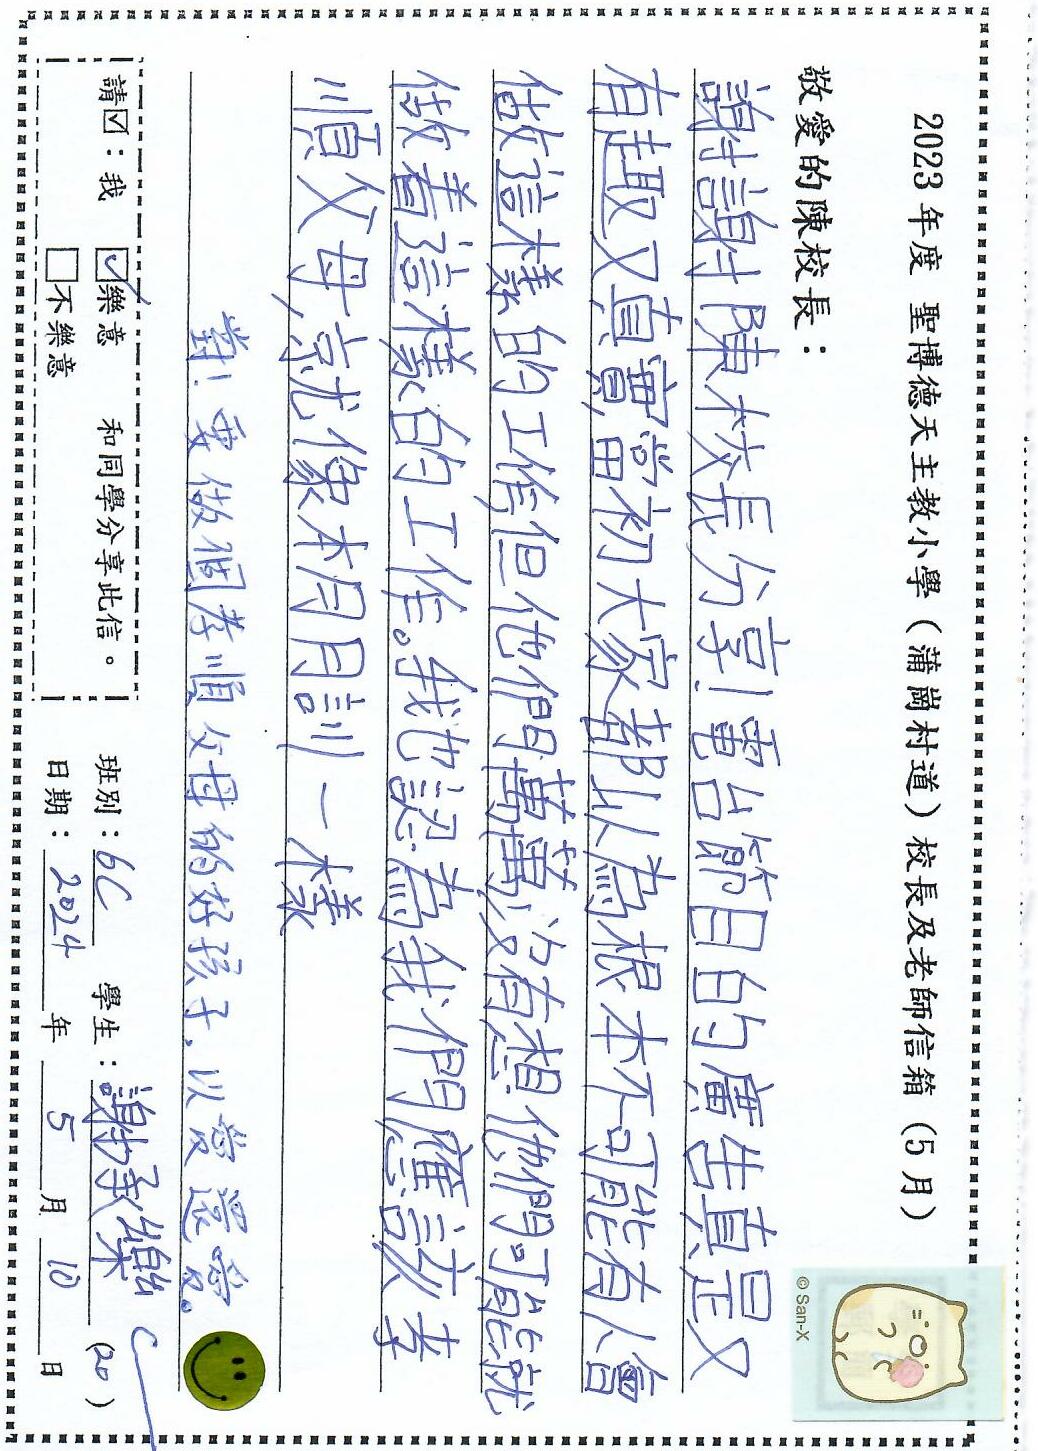 2023年度 聖博德天主教小學（蒲崗村道）校長及老師信箱（5月）
敬愛的陳校長：
謝謝陳校長分享!電台節目的廣告真是又
有趣又真實,當初大家都以為根本不可能有人會
做這樣的工作,但他們萬萬沒有想他們可能就
做着這樣的工作。我也認為我們應該孝
順父母,京尤像本月月訓一樣
對!要做個孝順父母的好孩子,以當反還。
請☑：我 ☑樂意 和同學分享此信。
☐不樂意
班別：6C 學生：謝承樂 (20)
日期：2024年5月10日
© San-X